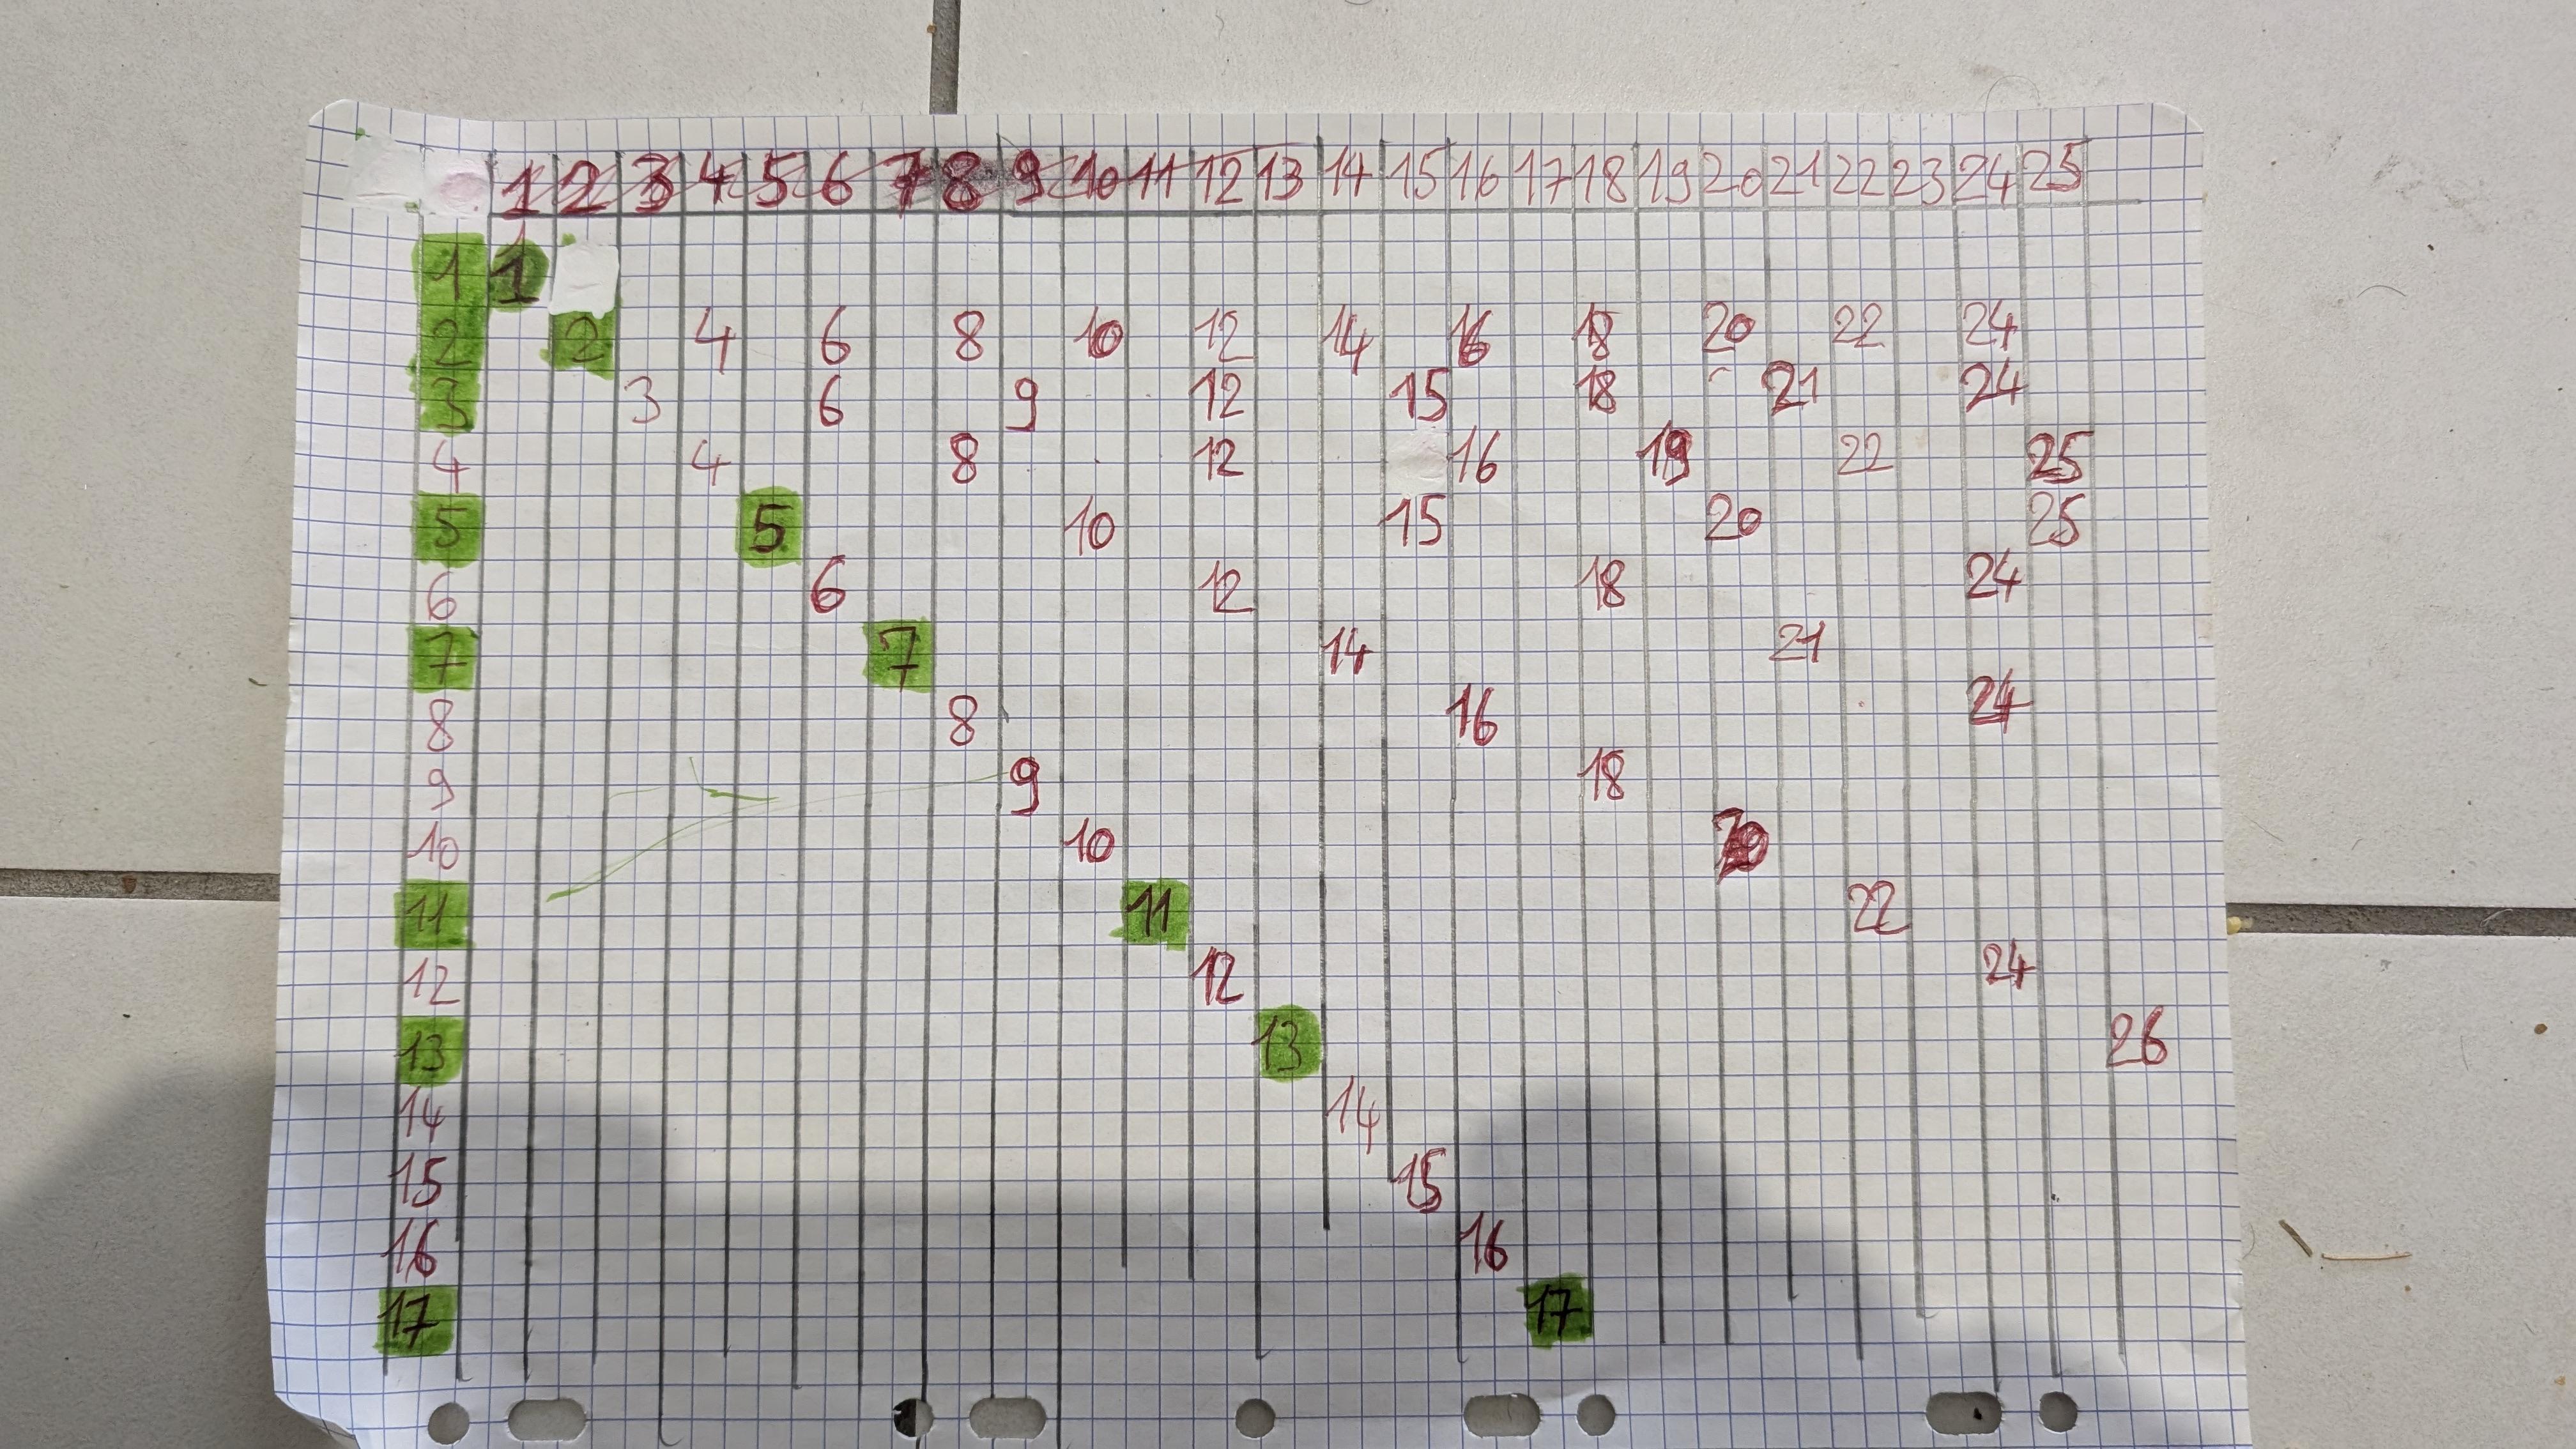 1 2 3 4 5 6 7 8 9 10 11 12 13 14 15 16 17 18 19 20 21 22 23 24 25
1 1
2 2 4 6 8 10 12 14 16 18 20 22 24
3 3 6 9 12 15 18 21 24
4 4 8 12 16 19 22 25
5 5 10 15 20 25
6 6 12 18 24
7 7 14 21
8 8 16 24
9 9 18
10 10
11 11 22
12 12 24
13 13 26
14 14
15 15
16 16
17 17